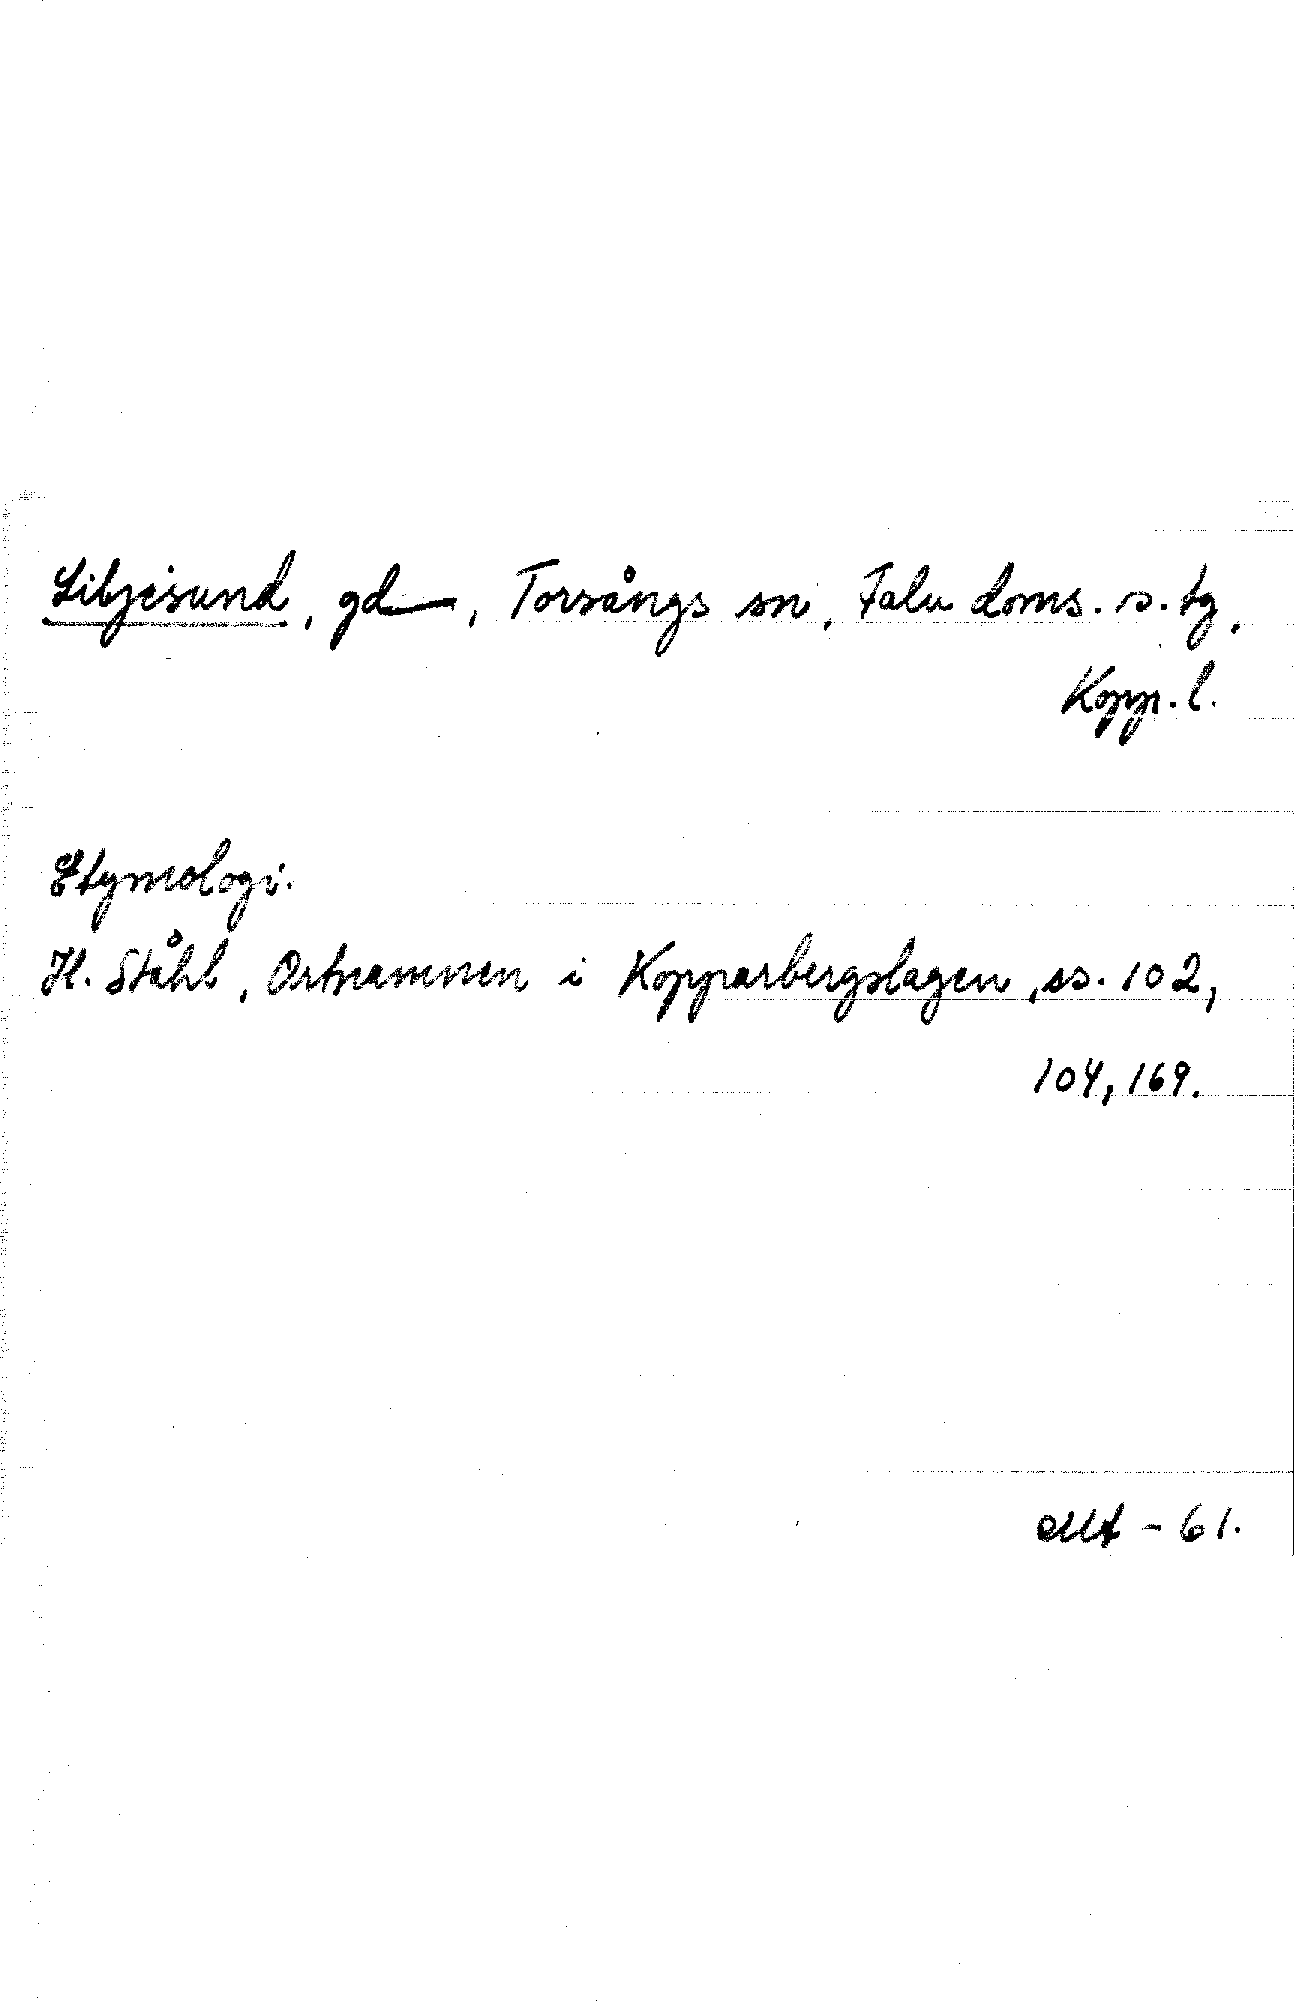 Liljesund, gd, Torsångs sn, Falu doms. s. tg,
Kopp. l.
Etymologi.
H. Ståhl, Ortnamnen i Kopparbergslagen, ss. 102,
104, 169.
- 61.